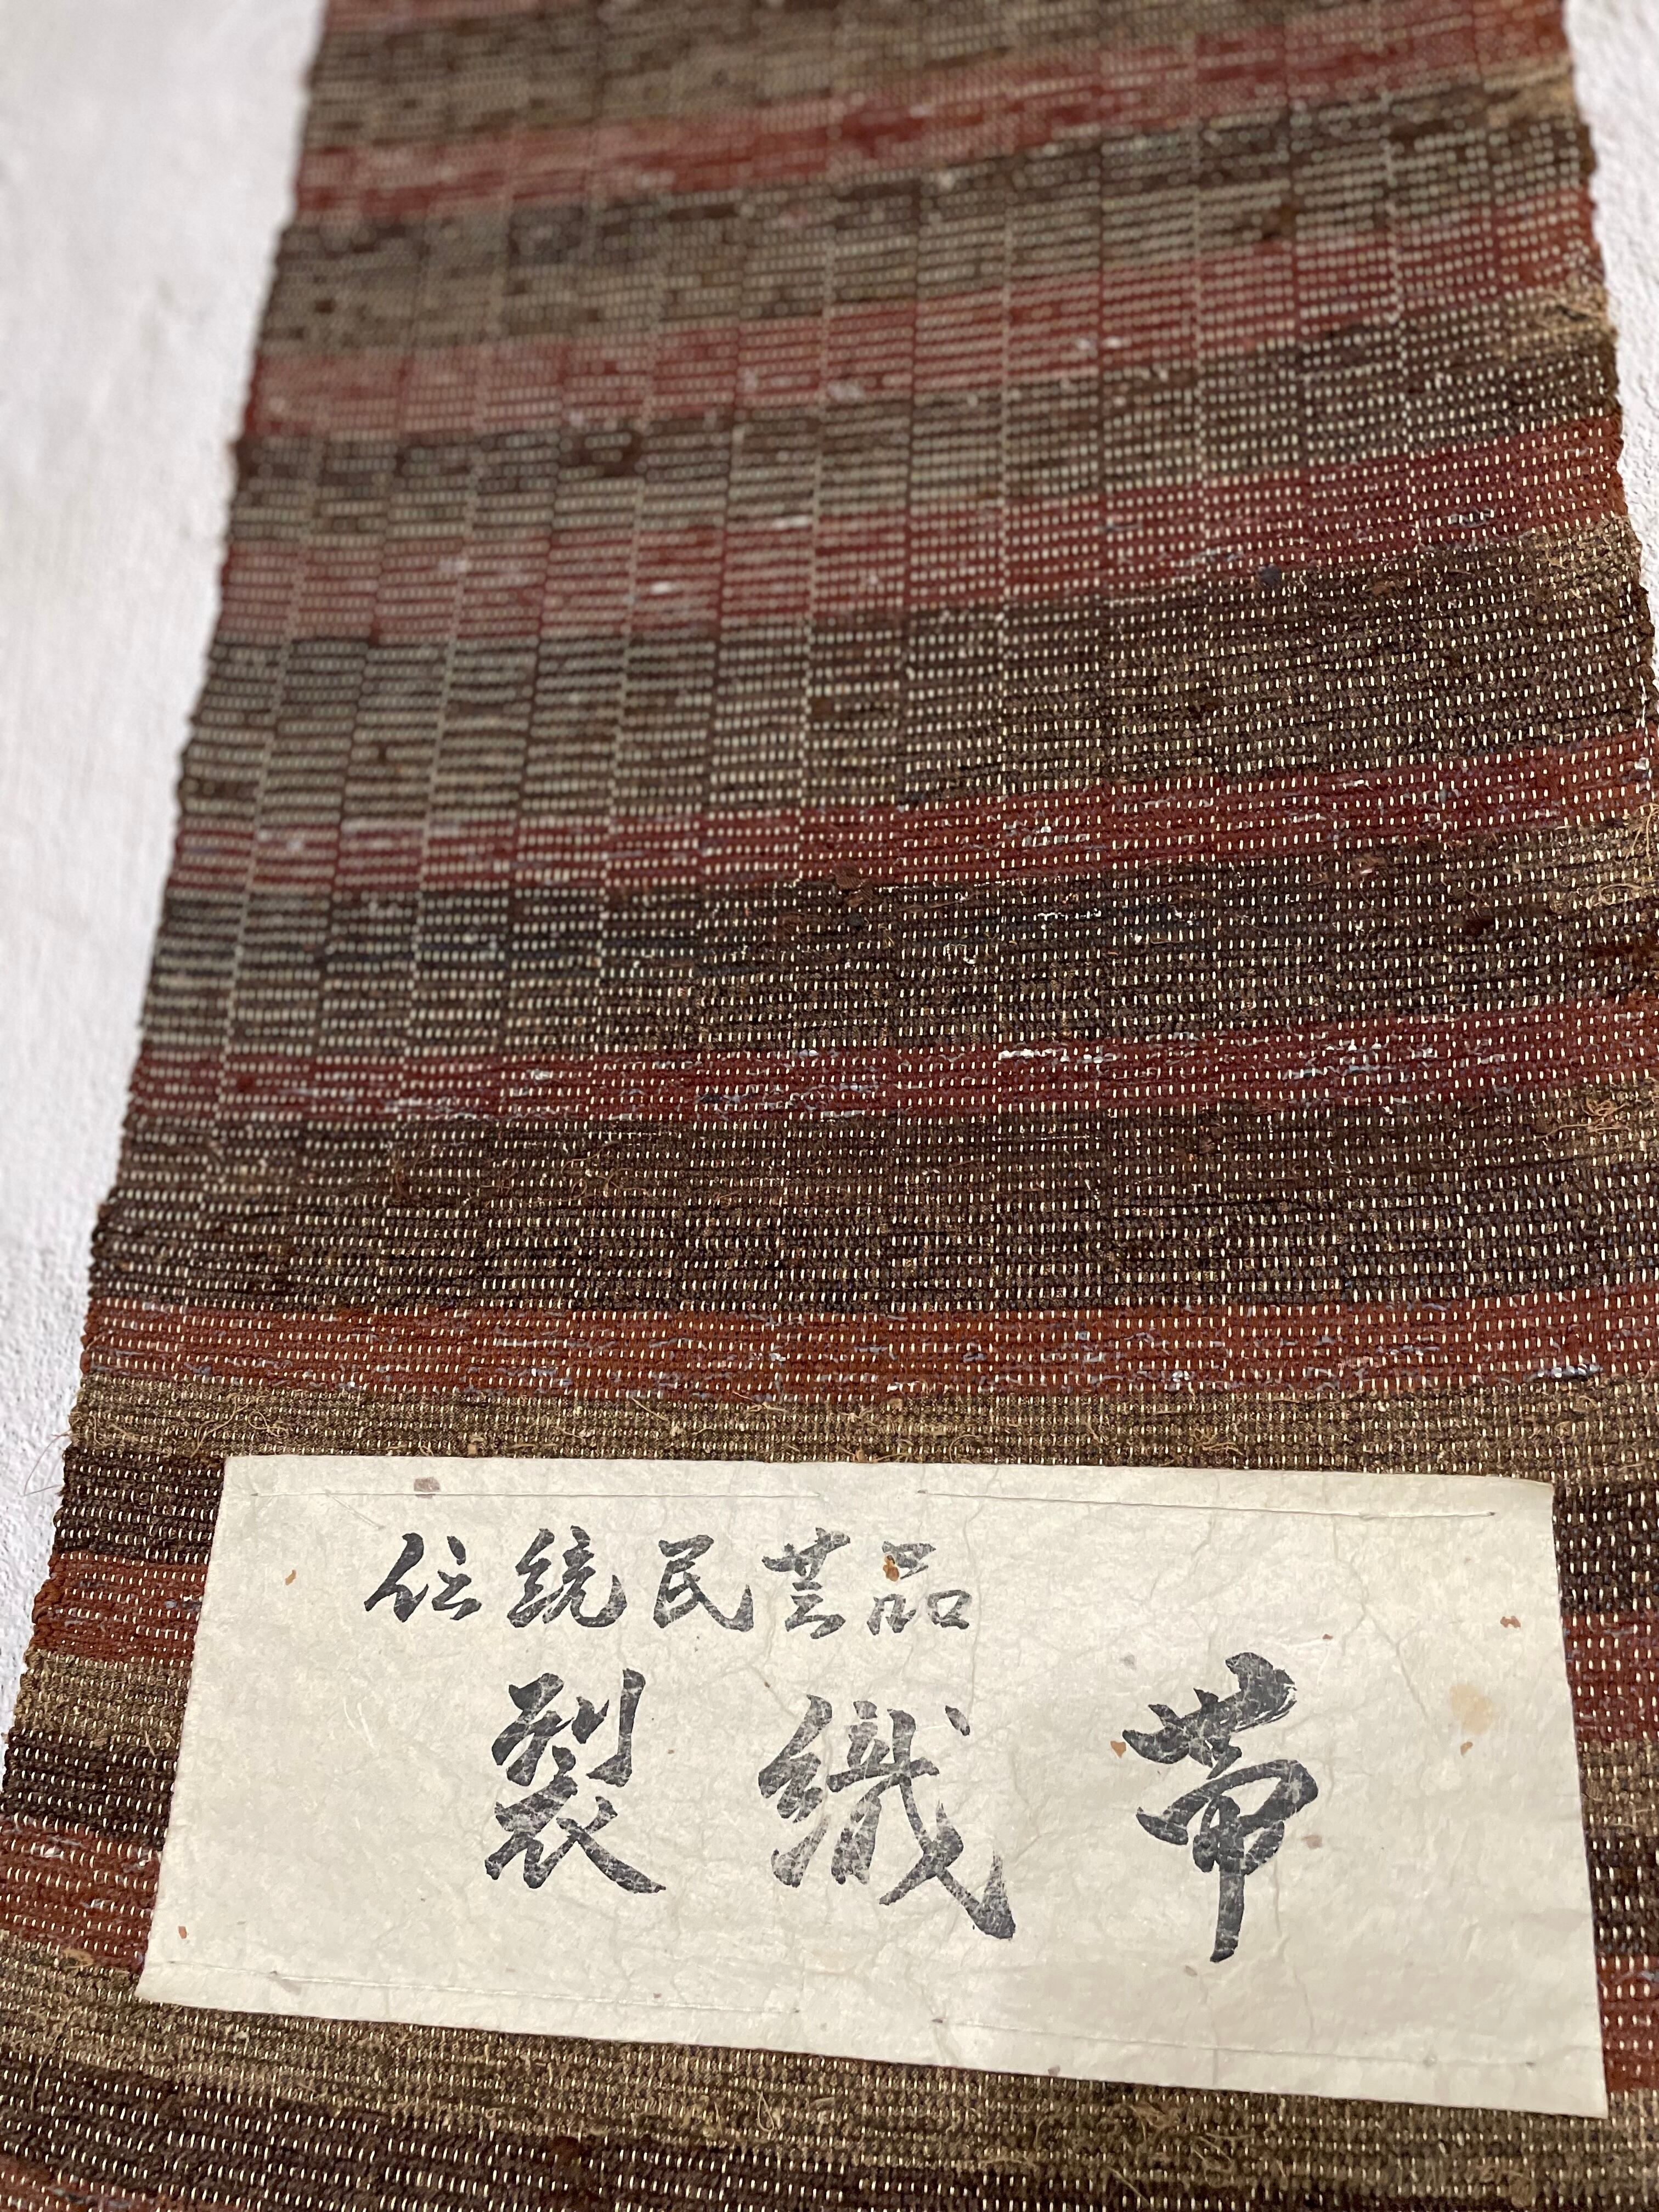 伝統民芸品
裂織帯